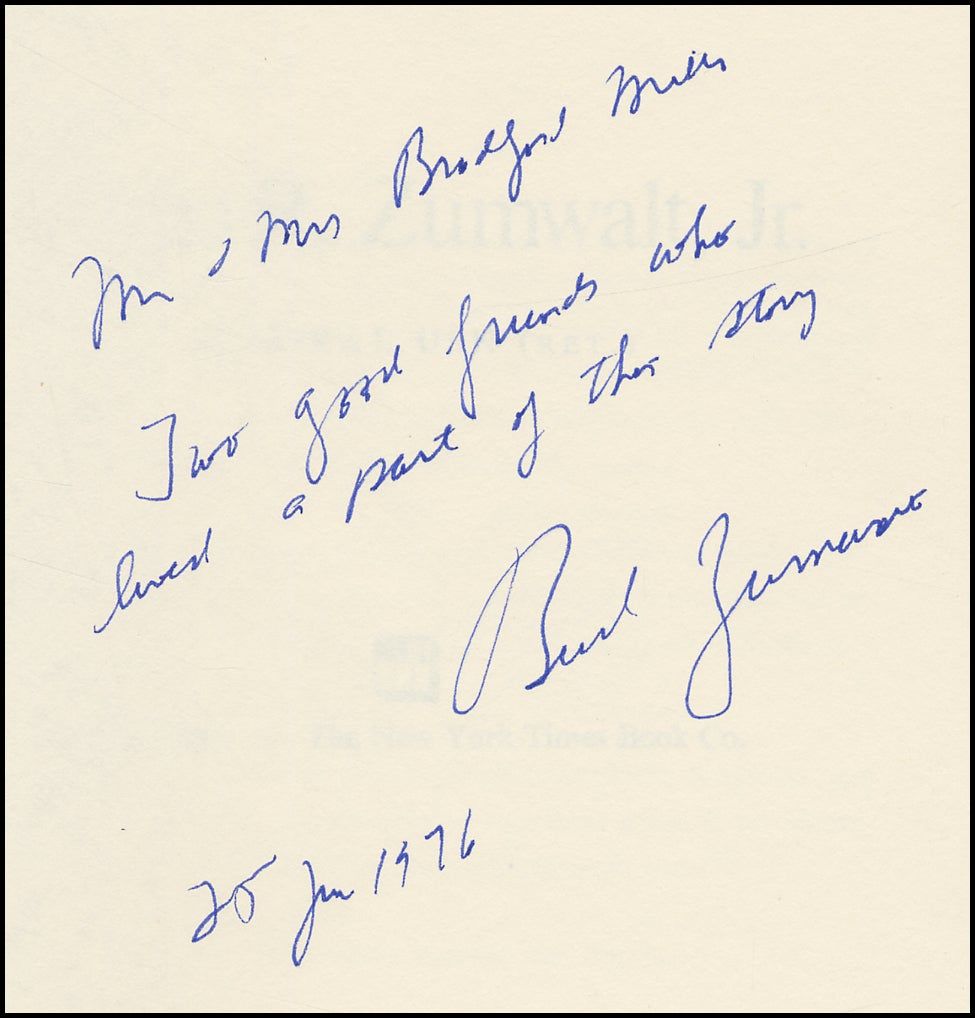 Mr & Mrs Bradford Mills
Two good friends who
lived a part of this story
Bud Zumwalt
25 Jun 1976
Zumwalt, Jr.
The New York Times Book Co.